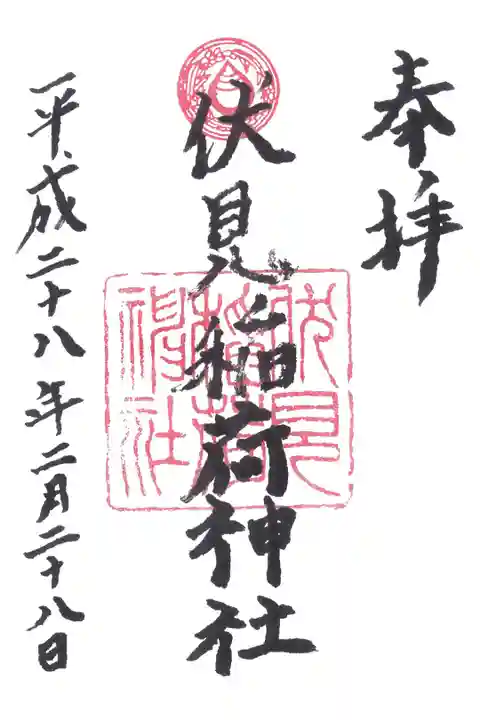 奉拝
伏見稲荷神社
平成二十八年二月二十八日
伏見
稲荷
神社